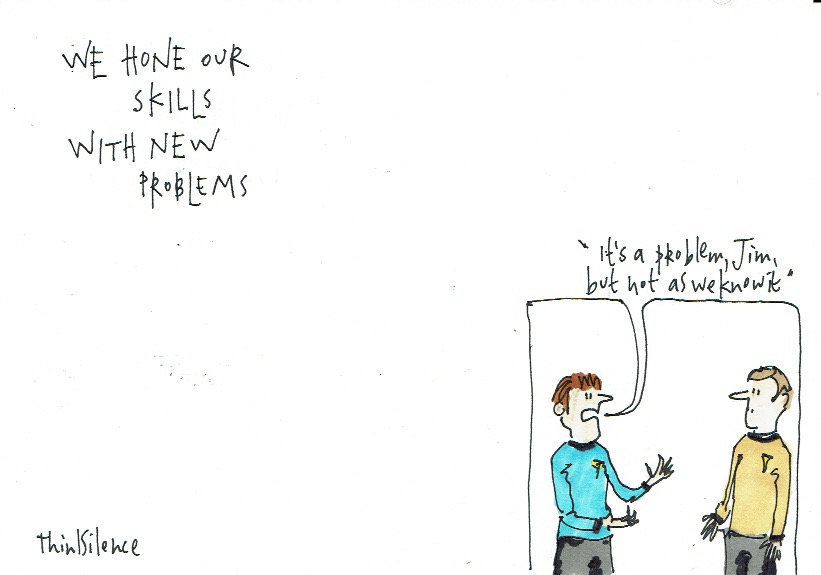 WE HONE OUR
SKILLS
WITH NEW
PROBLEMS
"It's a problem, Jim,
but not as we know it"
thinkSilence